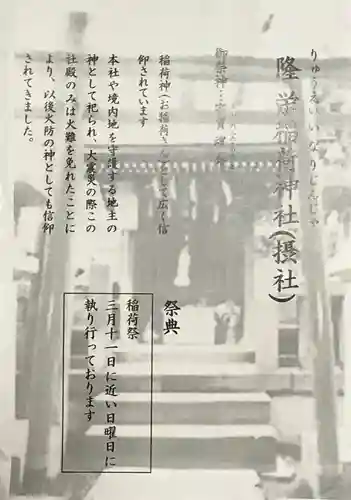 りゅうえいいなりじんじゃ
隆栄稲荷神社(摂社)
御祭神
稲荷神(お稲荷さん)として広く信
仰されています
本社や境内地を守護する地主の
神として祀られ、大震災の際この
社殿のみは火難を免れたことに
より、以後火防の神としても信仰
されてきました。
祭典
稲荷祭
三月十一日に近い日曜日に
執り行っております